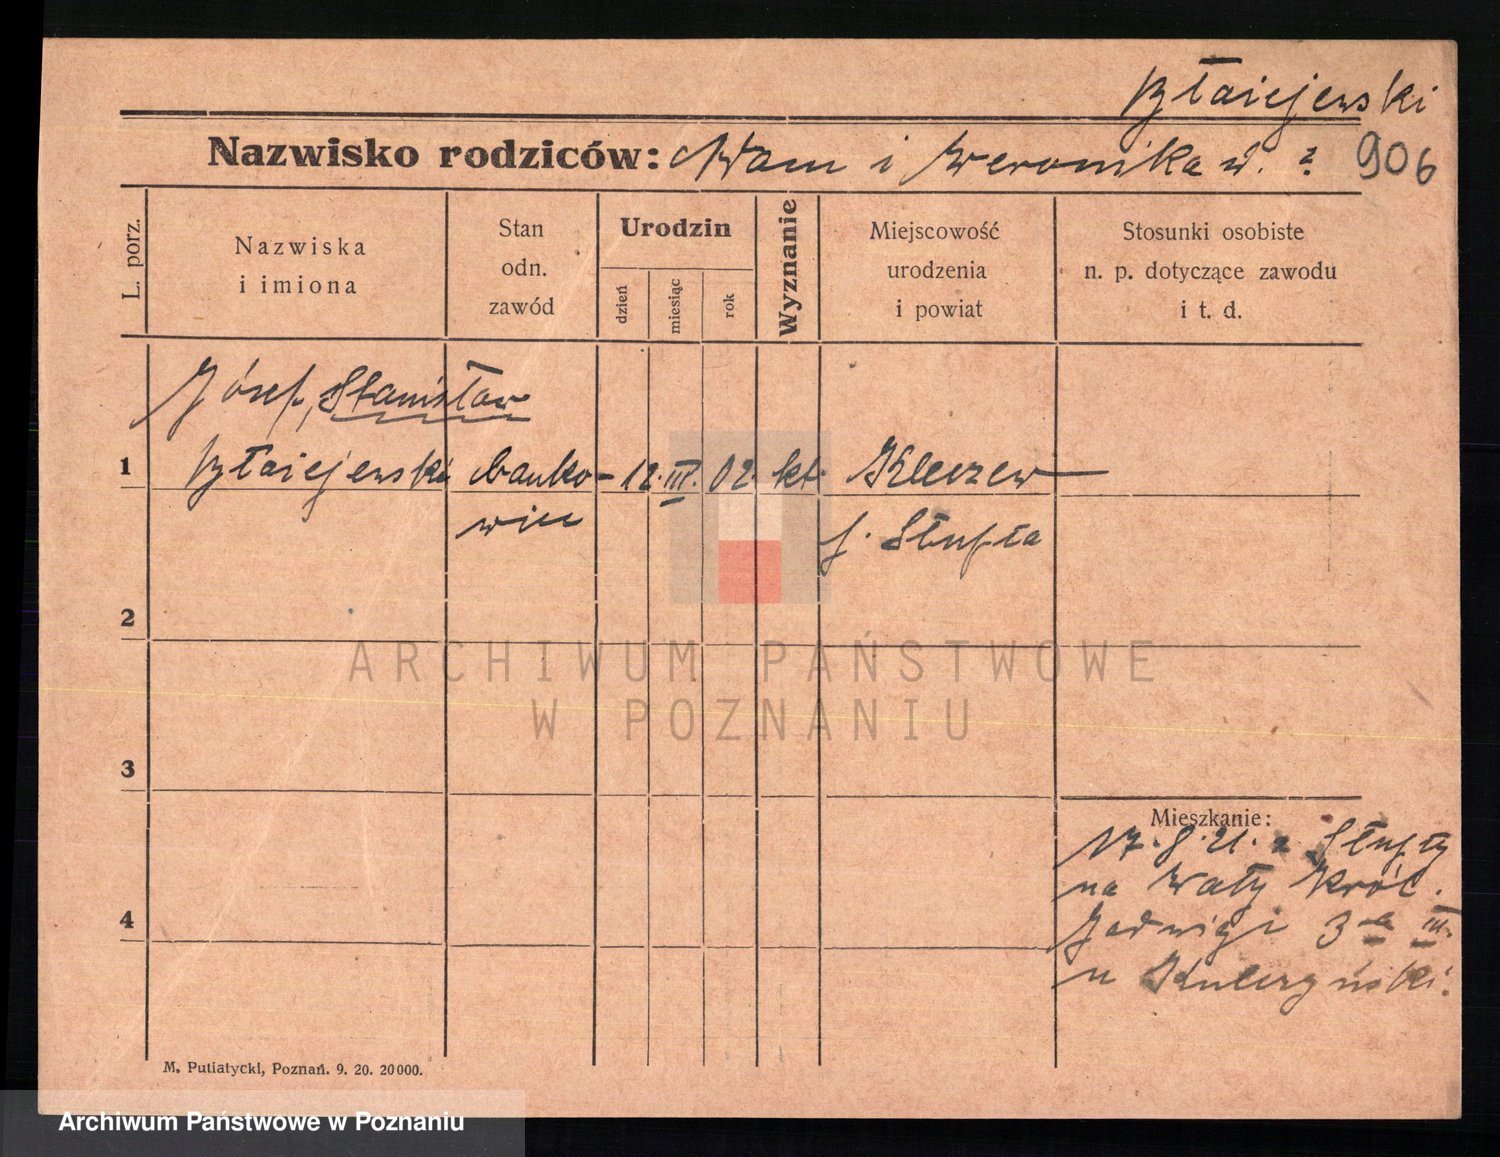 Błaiejewski
Nazwisko rodziców: Adam i Weronika d. ?
906
L. porz.
Nazwiska
i imiona
Stan
odn.
zawód
Urodzin
dzień
miesiąc
rok
Wyznanie
Miejscowość
urodzenia
i powiat
Stosunki osobiste
n. p. dotyczące zawodu
i t. d.
Józef, Stanisław
1 Błaiejewski banko- 12. III. 02. kt. Kleczew
wiec p. Słupca
2
3
4
Mieszkanie:
17. 8. 21. z Słupcy
na Wały Król.
Jadwigi 3a III.
u Kulczyński.
M. Putiatycki, Poznań. 9. 20. 20000.
ARCHIWUM PAŃSTWOWE
W POZNANIU
Archiwum Państwowe w Poznaniu